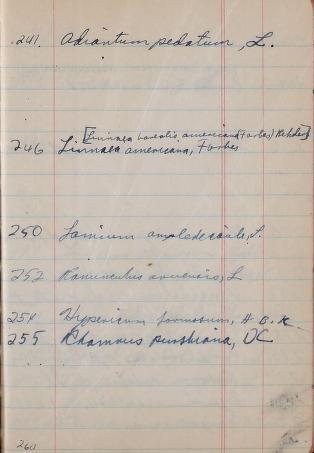 .241. Adiantum pedatum, L.
[Linnaea borealis americana (Forbes) Rehder]
246 Linnaea americana, Forbes
250 Lamium amplexicaule, L.
252 Ranunculus arvensis, L
254 Hypericum formosum, H. B. K.
255 Rhamnus purshiana, DC
260